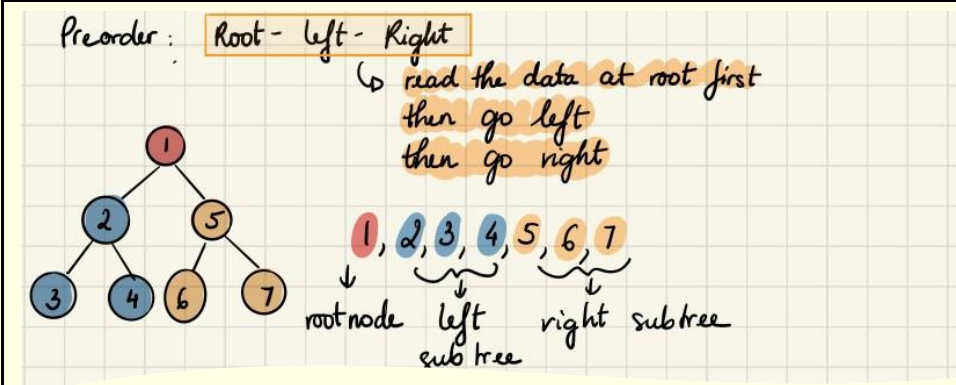 Preorder: Root - left - Right
read the data at root first
then go left
then go right
1
2
5
3
4
6
7
1, 2, 3, 4, 5, 6, 7
root node
left
sub tree
right subtree